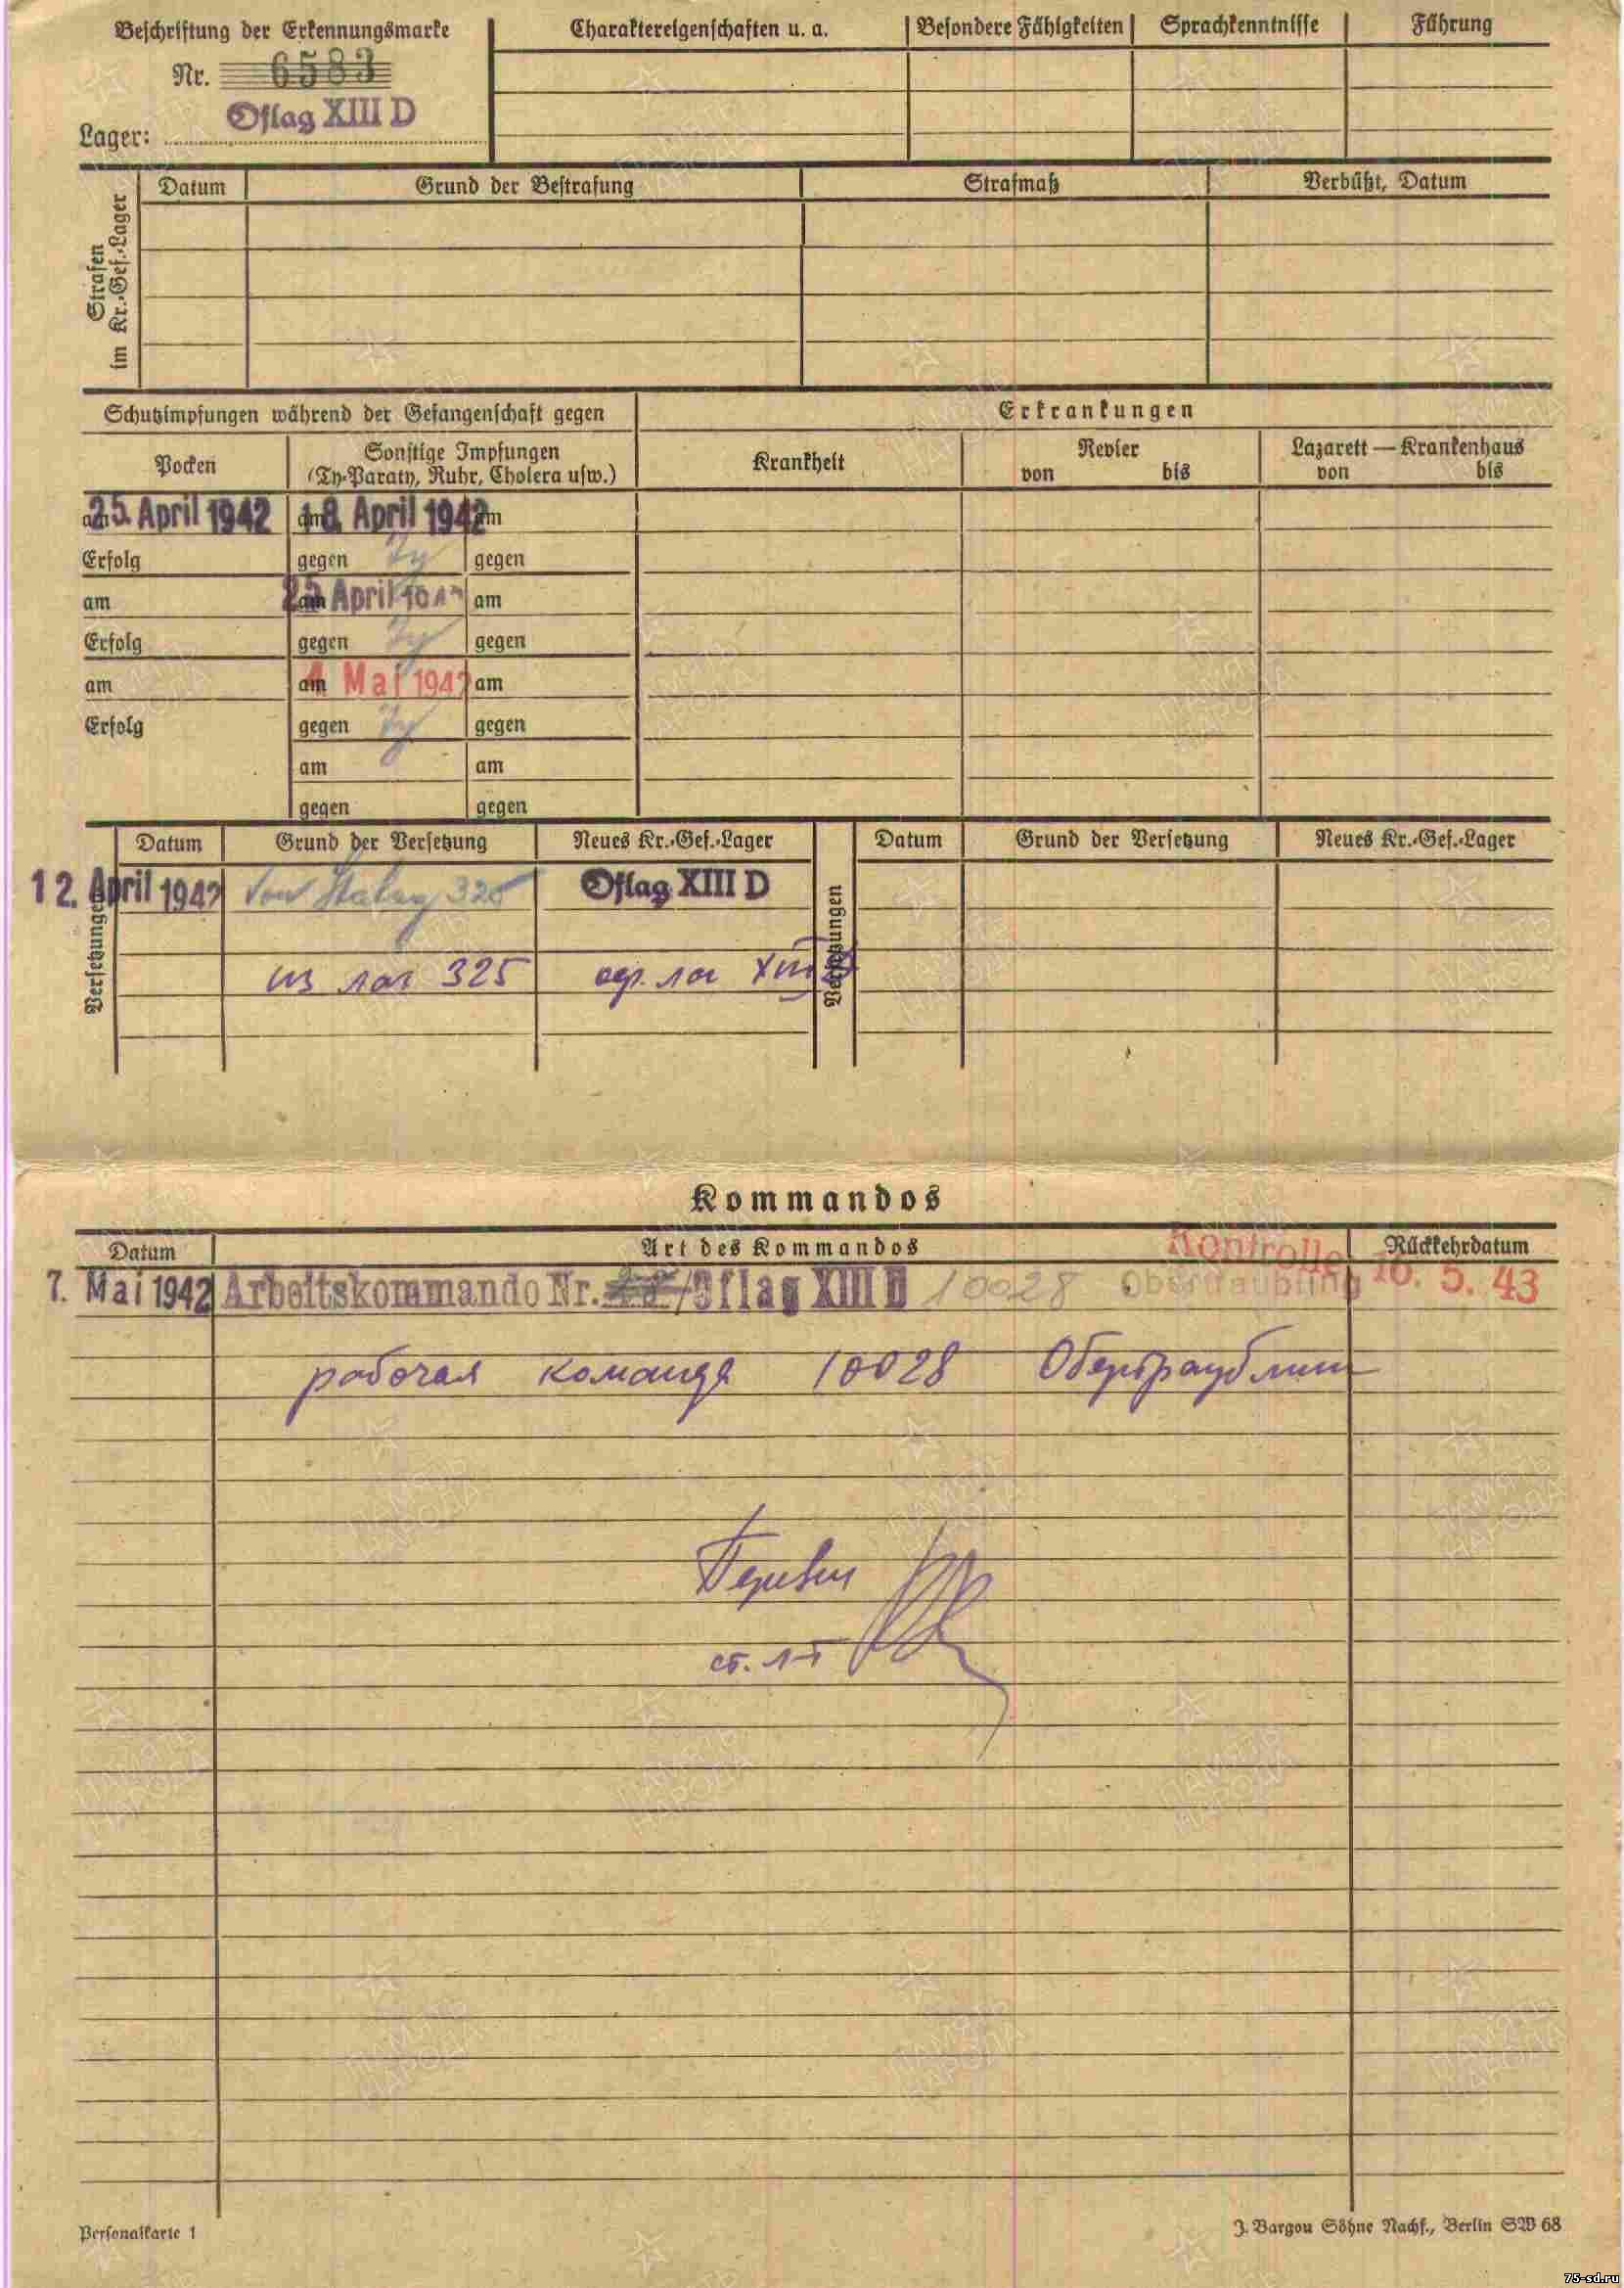 Beschriftung der Erkennungsmarke
Nr. 6583
Lager: Oflag XIII D
Charaktereigenschaften u. a. Besondere Fähigkeiten Sprachkenntnisse Führung
Strafen
im Kr.-Gef.-Lager
Datum Grund der Bestrafung Strafmaß Verbüßt, Datum
Schutzimpfungen während der Gefangenschaft gegen
Erkrankungen
Pocken
Sonstige Impfungen
(Ty-Paraty, Ruhr, Cholera usw.)
Krankheit
Revier
von bis
Lazarett — Krankenhaus
von bis
am 25. April 1942 am 18. April 1942 am
Erfolg gegen Ty gegen
am am April am
Erfolg gegen Ty gegen
am am Mai 1942 am
Erfolg gegen Ty gegen
am am
gegen gegen
Versetzungen
Datum Grund der Versetzung Neues Kr.-Gef.-Lager
12. April 1942 von Stalag 325 Oflag XIII D
из лаг 325 оф. лаг XIII
Versetzungen
Datum Grund der Versetzung Neues Kr.-Gef.-Lager
Kommandos
Datum Art des Kommandos Rückkehrdatum
Kontrolle 16. 5. 43
7. Mai 1942 Arbeitskommando Nr. / Oflag XIII D 10028 Obertraubling
рабочая команда 10028 Обертраублинг
Перевел
ст. л-т
Personalkarte 1
J. Bargou Söhne Nachf., Berlin SW 68
ПАМЯТЬ
НАРОДА
75-sd.ru